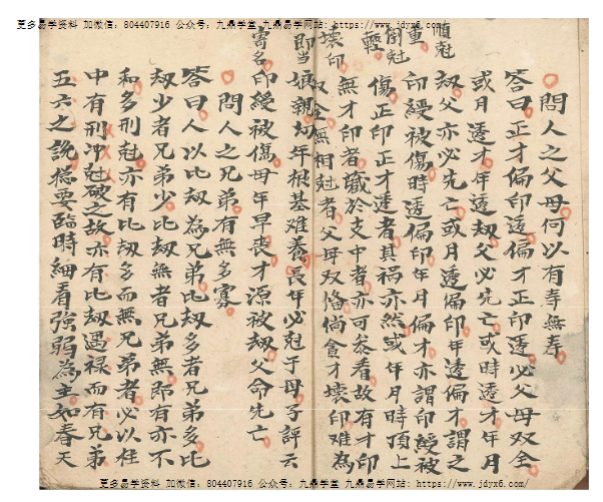 更多易学资料 加微信：804407916 公众号：九鼎学堂 九鼎易学网站：https://www.jdyx6.com/
問人之父母何以有寿無寿
答曰正才偏印透偏才正印透必父母双全
或月透才年透刼父必先亡或時透才年月
刼父亦必先亡或月透偏印年透偏才謂之
印綬被傷時透偏印年月偏才亦謂印綬被
傷正印正才透者其禍亦然或年月時頂上
無才印者藏於支中者亦可参看故有才印
双全無相尅者父母双俻倘貪才壊印难為
娘親幼年根基难養長年必尅于母子評云
印綬被傷母年早丧才源被刼父命先亡
順尅
重
倒尅
輕
壊印
即当
寄名
問人之兄弟有無多寡
答曰人以比刼為兄弟比刼多者兄弟多比
刼少者兄弟少比刼無者兄弟無即有亦不
和多刑尅亦有比刼多而無兄弟者必以柱
中有刑冲尅破之故亦有比刼遇禄而有兄弟
五六之說揔要臨時細看強弱為主如春天
更多易学资料 加微信：804407916 公众号：九鼎学堂 九鼎易学网站：https://www.jdyx6.com/